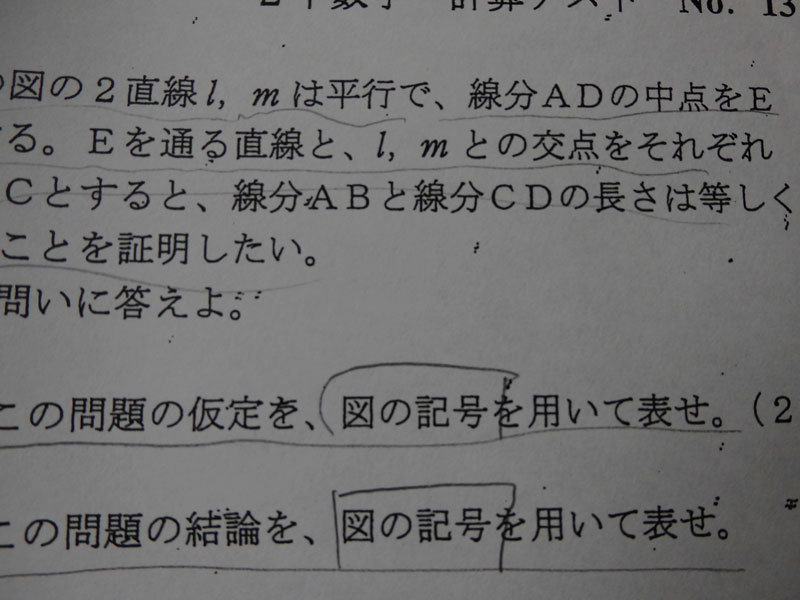 ２年数学 計算テスト No. 13
図の２直線l, mは平行で、線分ＡＤの中点をＥ
る。Ｅを通る直線と、l, mとの交点をそれぞれ
Ｃとすると、線分ＡＢと線分ＣＤの長さは等しく
ことを証明したい。
問いに答えよ。
この問題の仮定を、図の記号を用いて表せ。（２
この問題の結論を、図の記号を用いて表せ。